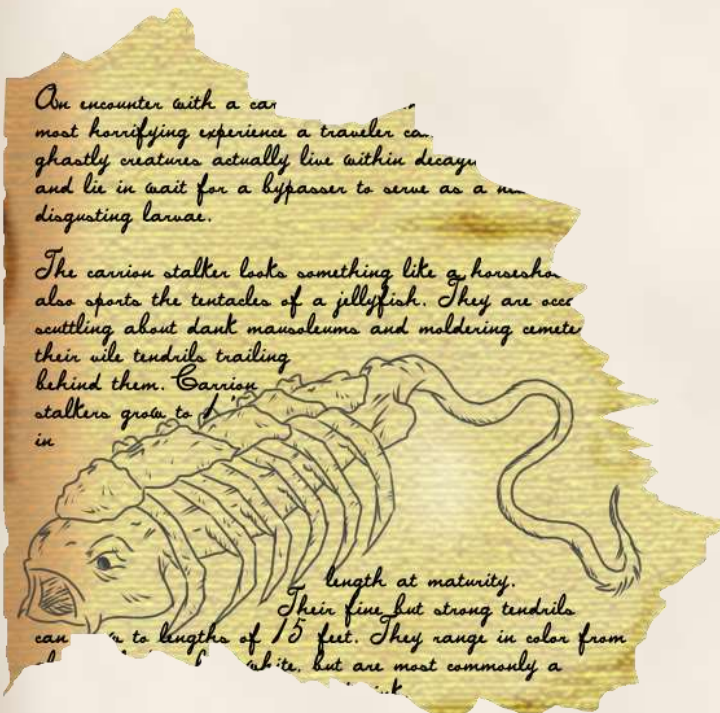 An encounter with a car
most horrifying experience a traveler ca
ghastly creatures actually live within decay
and lie in wait for a bypasser to serve as a
disgusting larvae.
The carrion stalker looks something like a horsesho
also sports the tentacles of a jellyfish. They are occ
scuttling about dank mausoleums and moldering cemete
their vile tendrils trailing
behind them. Carrion
stalkers grow to 1'
in
length at maturity.
Their fine but strong tendrils
can to lengths of 15 feet. They range in color from
white, but are most commonly a